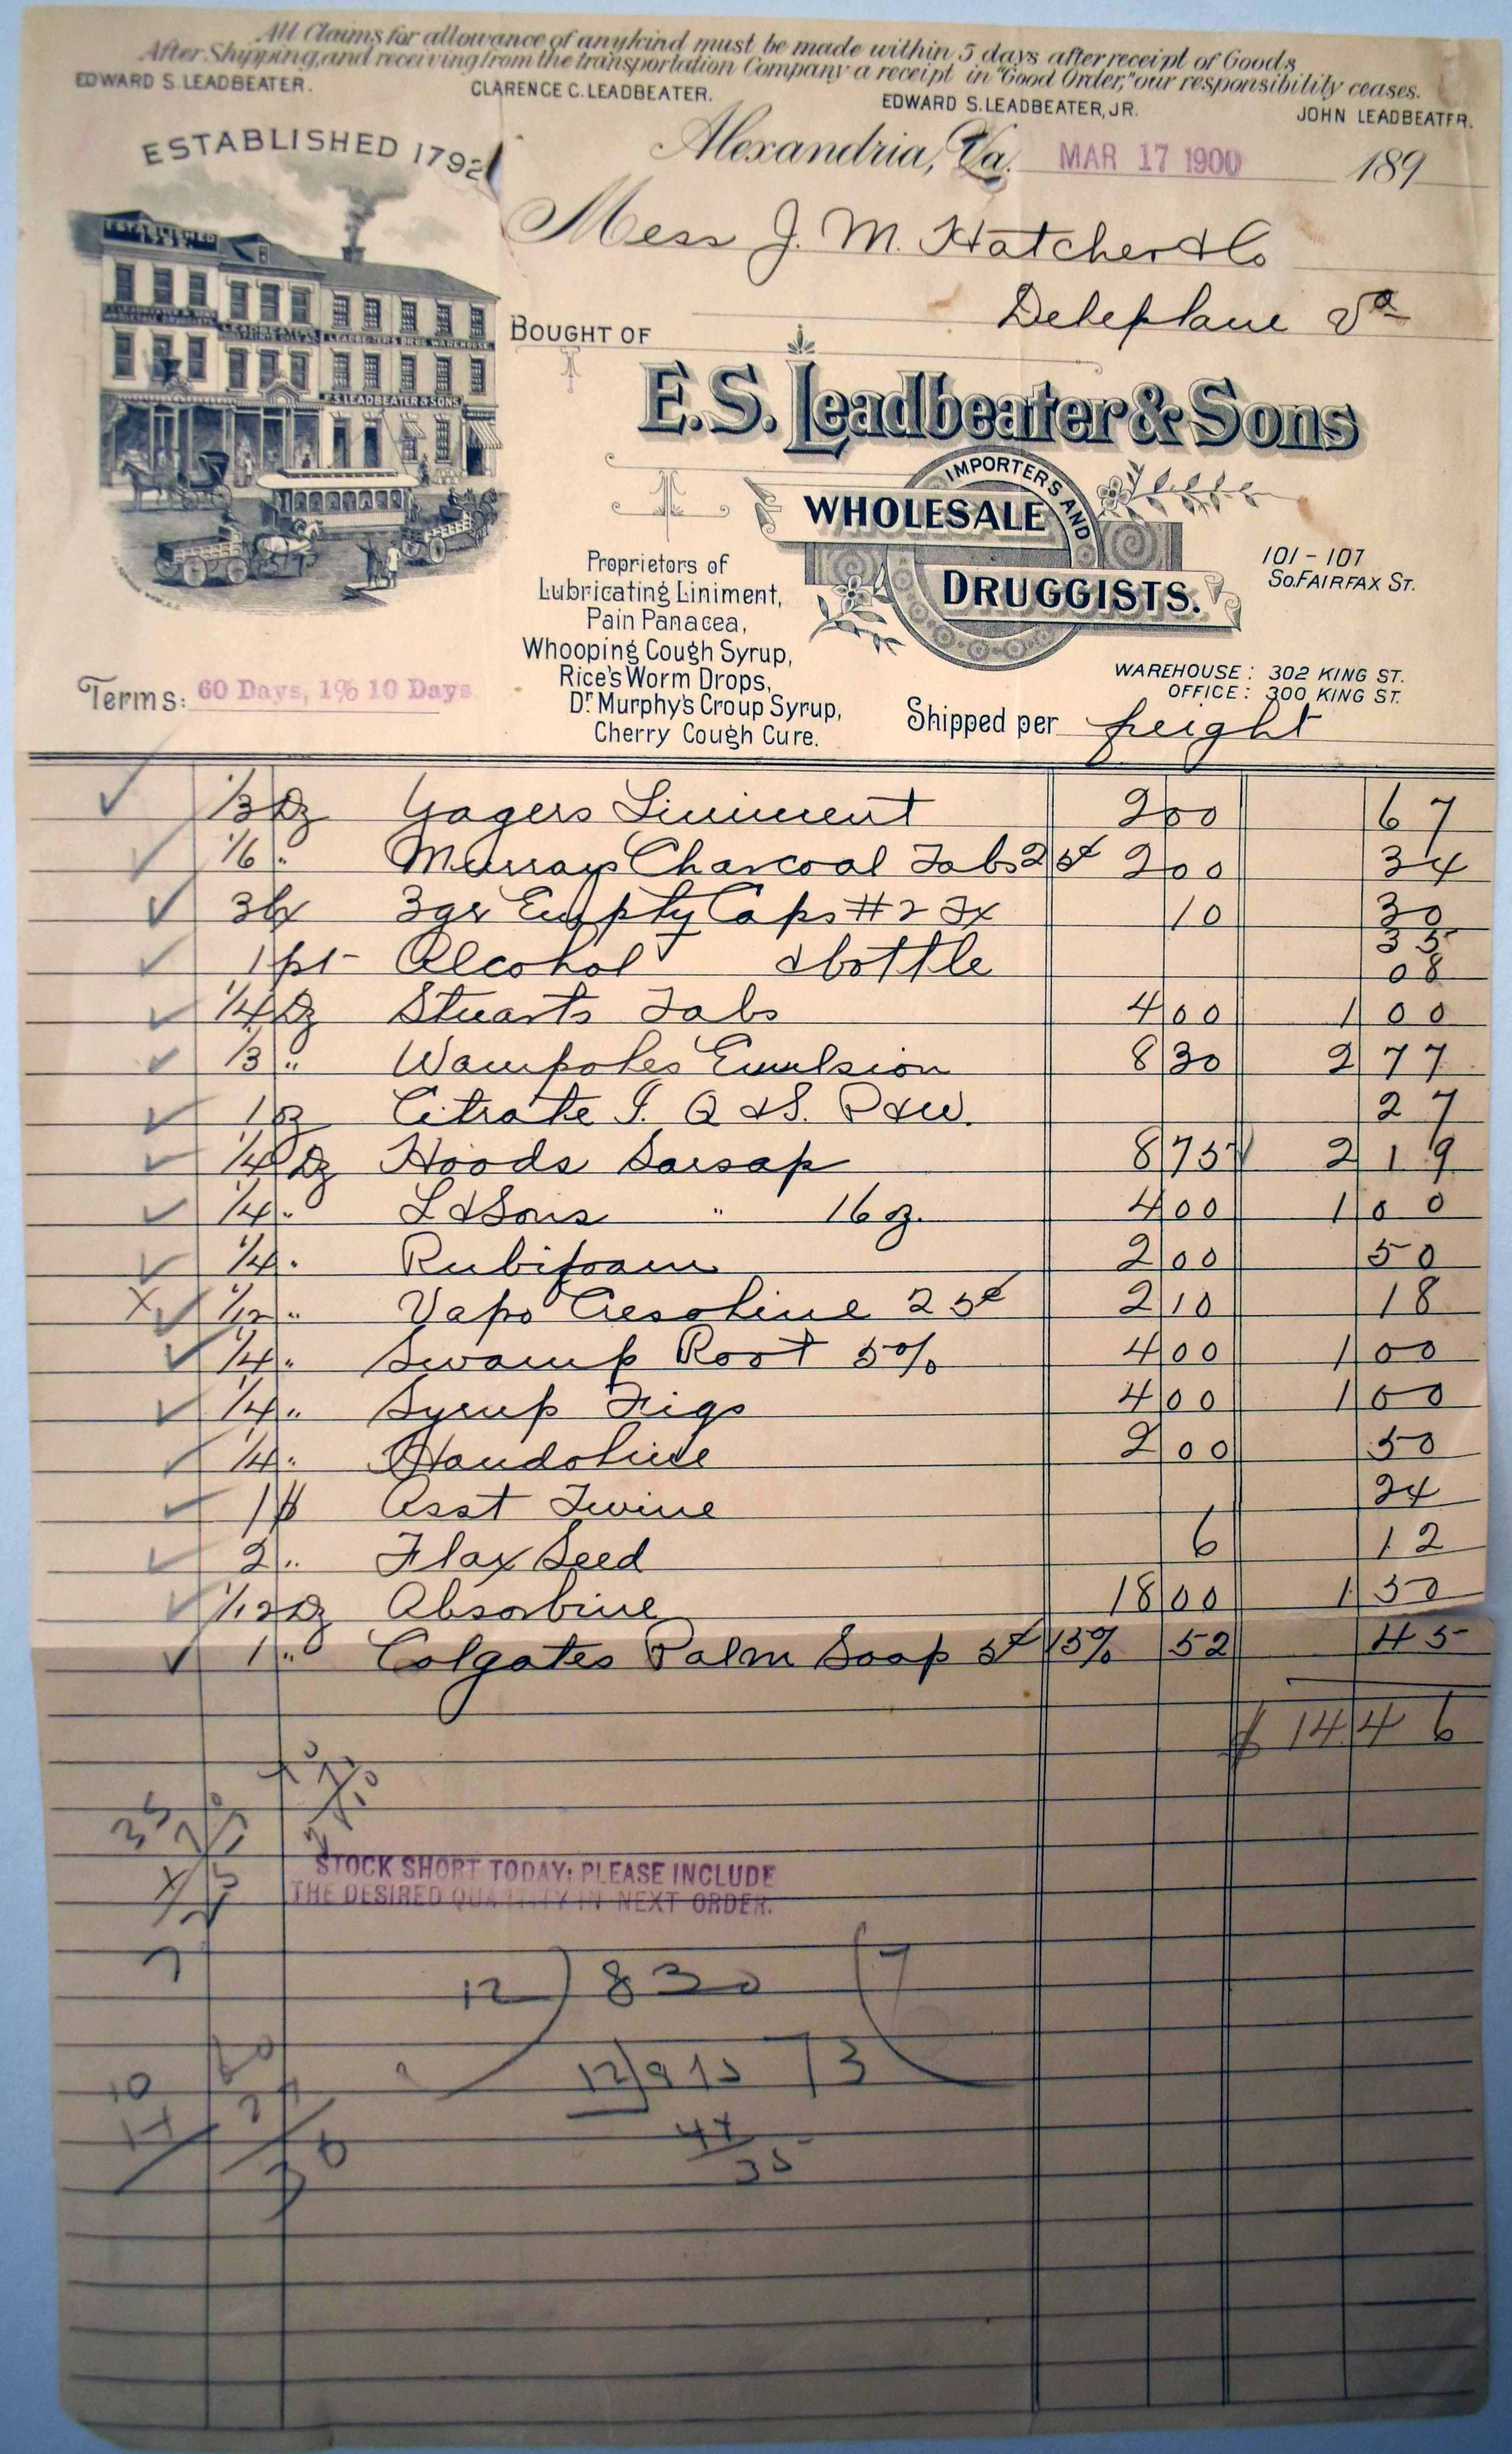 All Claims for allowance of any kind must be made within 5 days after receipt of Goods.
After Shipping, and receiving from the transportation Company a receipt in "Good Order," our responsibility ceases.
EDWARD S. LEADBEATER. CLARENCE C. LEADBEATER. EDWARD S. LEADBEATER, JR. JOHN LEADBEATER.
ESTABLISHED 1792
Alexandria, Va. MAR 17 1900 189
Mess J. M. Hatcher & Co
Deleplane Va
ESTABLISHED
1792
LEADBEATER'S DRUG WAREHOUSE
E.S. LEADBEATER & SONS
BOUGHT OF
E.S. Leadbeater & Sons
IMPORTERS AND
WHOLESALE
DRUGGISTS.
101 - 107
So. FAIRFAX ST.
Proprietors of
Lubricating Liniment,
Pain Panacea,
Whooping Cough Syrup,
Rice's Worm Drops,
Dr Murphy's Croup Syrup,
Cherry Cough Cure.
WAREHOUSE: 302 KING ST.
OFFICE: 300 KING ST.
Terms: 60 Days, 1% 10 Days
Shipped per freight
1/3 Dz Yagers Liniment 2 00 67
1/6 " Murrays Charcoal Tabs 25¢ 2 00 34
3 bx 3gr Empty Caps #2 10 30
1 pt Alcohol & bottle 35 08
1/4 Dz Stuarts Tabs 4 00 1 00
1/3 " Wampoles Emulsion 8 30 2 77
1 oz Citrate I. Q & S. P & W. 27
1/4 Dz Hoods Sarsap 8 75 2 19
1/4 " L & Sons " 16 oz. 4 00 1 00
1/4 " Rubifoam 2 00 50
X 1/12 " Vapo Cresoline 25¢ 2 10 18
1/4 " Swamp Root 50% 4 00 1 00
1/4 " Syrup Figs 4 00 1 00
1/4 " Bandoline 2 00 50
1 # Asst Twine 24
2 " Flax Seed 6 12
1/12 Dz Absorbine 18 00 1 50
1 " Colgates Palm Soap 5¢ 15% 52 45
$ 14 46
35
STOCK SHORT TODAY; PLEASE INCLUDE
THE DESIRED QUANTITY IN NEXT ORDER.
12 ) 830 ( 7
35